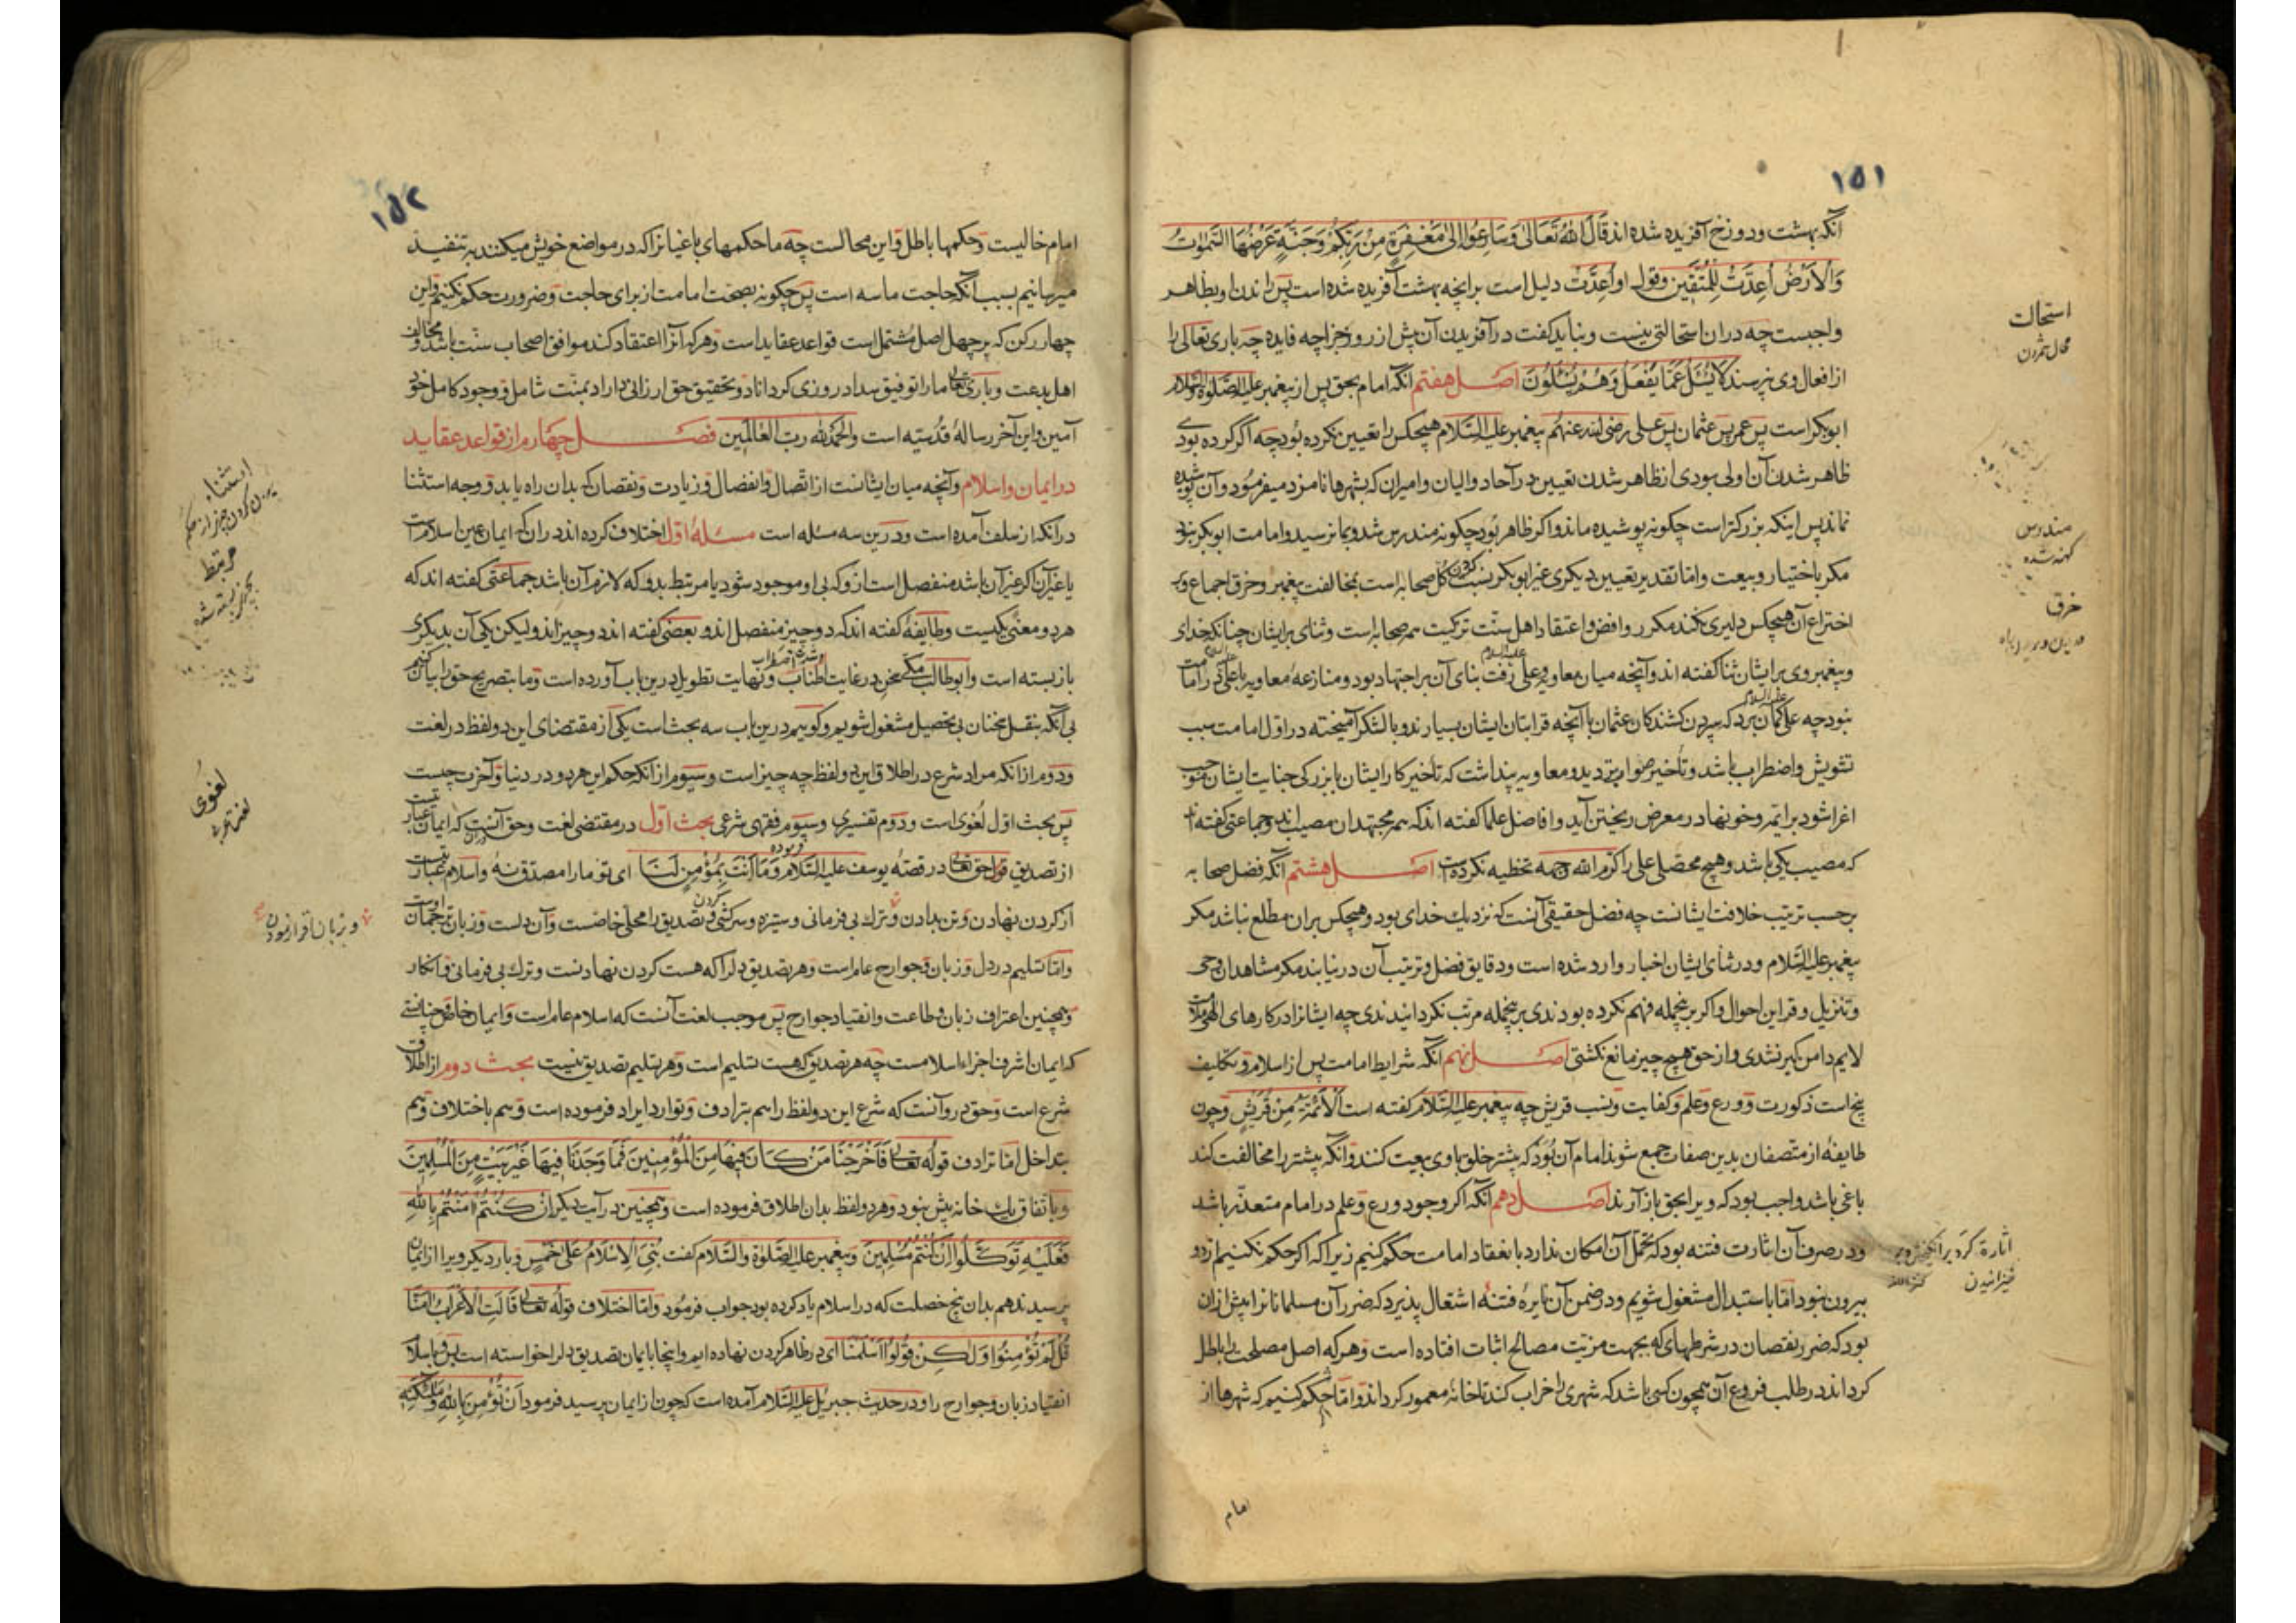 ۱۵۱
آنکه بهشت و دوزخ آفریده شده اند قَالَ اللهُ تَعَالیٰ وَسَارِعُوا اِلیٰ مَغْفِرَةٍ مِنْ رَبِّکُمْ وَجَنَّةٍ عَرْضُهَا السَّمٰوٰتُ
وَالْاَرْضُ اُعِدَّتْ لِلْمُتَّقِینَ وقول او اُعِدَّتْ دلیل است برانچه بهشت آفریده شده است پس راندن او بظاهر
واجبست چه دران استحالتی نیست و نباید گفت در آفریدن آن پیش از روز جزا چه فایده چه باری تعالی را
از افعال وی نپرسند لَا یُسْئَلُ عَمَّا یَفْعَلُ وَهُمْ یُسْئَلُونَ اصل هفتم آنکه امام بحق پس از پیغمبر علیه الصلوة والسلام
ابوبکر است پس عمر پس عثمان پس علی رضی الله عنهم پیغمبر علیه السلام هیچکس را تعیین نکرده بود چه اگر کرده بودی
ظاهر شدن آن اولی بودی از ظاهر شدن تعیین در آحاد والیان و امیران که بشهرها نامزد میفرمود و آن پوشیده
نماند پس اینکه بزرگتر است چگونه پوشیده ماند و اگر ظاهر بود چگونه مندرس شد و بما نرسید و امامت ابوبکر نبود
مکر باختیار و بیعت و اما تقدیر تعیین دیگری غیر ابوبکر نسبت کردن کل صحابه است بمخالفت پیغمبر و خرق اجماع و بر
اختراع آن هیچکس دلیری نکند مکر روافض و اعتقاد اهل سنّت تزکیت همه صحابه است و ثنای بر ایشان چنانکه خدای
و پیغمبر وی بر ایشان ثنا گفته اند و آنچه میان معاویه و علی علیه السلام رفت بنای آن بر اجتهاد بود و منازعهٔ معاویه با علی در امامت
نبود چه علی علیه السلام گمان برد که سپردن کشندگان عثمان با آنچه قرابتان ایشان بسیارند و بالشکر آمیخته در اول امامت سبب
تشویش و اضطراب باشد و تأخیر صواب تر دید و معاویه پنداشت که تأخیر کار ایشان با بزرگی جنایت ایشان موجب
اغرا شود بر ایمّه و خونها در معرض ریختن آید و افاضل علما گفته اند که همه مجتهدان مصیب اند و جماعتی گفته اند
که مصیب یکی باشد و هیچ محصّلی علی را کرّم الله وجهه تخطیه نکرده است اصل هشتم آنکه فضل صحابه
برحسب ترتیب خلافت ایشانست چه فضل حقیقی آنست که نزدیك خدای بود و هیچکس بران مطلع نباشد مکر
پیغمبر علیه السلام و در ثنای ایشان اخبار وارد شده است و دقایق فضل و ترتیب آن درنیابند مکر مشاهدان وحی
و تنزیل و قراین احوال و اگر برینجمله فهم نکرده بودندی برینجمله مرتب نکردانیدندی چه ایشانرا در کارهای الهی ملامت
لایم دامن گیر نشدی و از حق هیچ چیز مانع نگشتی اصل نهم آنکه شرایط امامت پس از اسلام و تکلیف
پنج است ذکورت و ورع و علم و کفایت و نسب قریش چه پیغمبر علیه السلام گفته است اَلْاَئِمَّةُ مِنْ قُرَیْشٍ و چون
طایفهٔ از متصفان بدین صفات جمع شوند امام آن بود که بیشتر خلق با وی بیعت کنند و آنکه بیشتر را مخالفت کند
باغی باشد واجب بود که ویرا بحق باز آرند اصل دهم آنکه اکر وجود ورع و علم در امام متعذر باشد
و در صرف آن اثارت فتنه بود که تحمّل آن امکان ندارد بانعقاد امامت حکم کنیم زیرا که اکر حکم نکنیم از دو
بیرون نبود اما باستبدال مشغول شویم و در ضمن آن نایرهٔ فتنهٔ اشتعال پذیرد که ضرر آن مسلمانانرا بیش ازان
بود که ضرر نقصان در شرطهای که بجهت مزیّت مصالح اثبات افتاده است و هر که اصل مصلحت را باطل
کرداند در طلب فروع آن همچون کسی باشد که شهری را خراب کند تا خانهٔ معمور کرداند و اما حکم کنیم که شهرها از
امام
استحالت
محال شمردن
مندرس
کهنه شده
خرق
اثارة کرد برانگیختن و بر
خیزانیدن
۱۵۲
امام خالیست و حکمها باطل و این محالست چه ما حکمهای باغیانرا که در مواضع خویش میکنند به تنفیذ
میرسانیم بسبب آنکه حاجت ماسه است پس چگونه بصحت امامت از برای حاجت و ضرورت حکم نکنیم و این
چهار رکن که بر چهل اصل مُشتمل است قواعد عقاید است و هر که آنرا اعتقاد کند موافق اصحاب سنّت باشد و مخالف
اهل بدعت و باری تعالی مارا توفیق سداد روزی کرداناد و تحقیق حق ارزانی داراد بمنّت شامل و وجود کامل خود
آمین و این آخر رسالهٔ قُدسیّه است والحمدُ لله ربّ العالمین فصل چهارم از قواعد عقاید
در ایمان و اسلام و آنچه میان ایشانست از اتّصال و انفصال و زیادت و نقصان که بدان راه یابد و وجه استثنا
در آنکه از سلف آمده است و درین سه مسئله است مسئلهٔ اوّل اختلاف کرده اند دران که ایمان عین اسلامست
یا غیر آن اگر غیر آن باشد منفصل است ازو که بی او موجود شود یا مرتبط بدو که لازم آن باشد جماعتی گفته اند که
هر دو معنی یکیست و طایفهٔ گفته اند که دو چیز منفصل اند و بعضی گفته اند دو چیز اند ولیکن یکی آن بدیگری
باز بسته است و ابوطالب مکی سخن در غایت اطناب و نهایت تطویل درین باب آورده است و ما بتصریح حق را بیان کنیم
بی آنکه بنقل سخنان بی تحصیل مشغول شویم و گوییم درین باب سه بحث است یکی از مقتضای این دو لفظ در لغت
و دوم از انکه مراد شرع در اطلاق این دو لفظ چه چیز است و سیوم از انکه حکم این هر دو در دنیا و آخرت چیست
پس بحث اوّل لُغوی است و دوم تفسیری و سیوم فقهی شرعی بحث اوّل در مقتضی لغت و حق آنست که ایمان عبارتیست
از تصدیق قول حق تعالی در قصهٔ یوسف علیه السلام فرموده وَمَا اَنْتَ بِمُؤْمِنٍ لَنَا ای تو مارا مصدق نهٔ و اسلام عبارتیست
از گردن نهادن و تن بدادن و ترك بی فرمانی و ستیزه و سرکشی کردن و تصدیق را محلّی خاصست و آن دلست و زبان ترجمان اوست
و امّا تسلیم در دل و زبان و جوارح عام است و هر تصدیق دلرا که هست گردن نهادنست و ترك بی فرمانی و انکار
و همچنین اعتراف زبان و طاعت و انقیاد جوارح پس موجب لغت آنست که اسلام عام است و ایمان خاص و چنانستی
که ایمان اشرف اجزاء اسلامست چه هر تصدیق که هست تسلیم است و هر تسلیم تصدیق نیست بحث دوم از اطلاق
شرع است و حق در وآنست که شرع این دو لفظ را هم بترادف و توارد ایراد فرموده است و هم باختلاف و هم
بتداخل امّا ترادف قولُه تعالی فَاَخْرَجْنَا مَنْ کَانَ فِیهَا مِنَ الْمُؤْمِنِینَ فَمَا وَجَدْنَا فِیهَا غَیْرَ بَیْتٍ مِنَ الْمُسْلِمِینَ
و باتفاق یك خانه بیش نبود و هر دو لفظ بدان اطلاق فرموده است و همچنین در آیت دیگر اِنْ کُنْتُمْ اٰمَنْتُمْ بِاللهِ
فَعَلَیْهِ تَوَکَّلُوا اِنْ کُنْتُمْ مُسْلِمِینَ و پیغمبر علیه الصلوة والسلام گفت بُنِیَ الْاِسْلَامُ عَلیٰ خَمْسٍ و بار دیگر ویرا از ایمان
پرسیدند هم بدان پنج خصلت که در اسلام یاد کرده بود جواب فرمود و امّا اختلاف قولُه تعالی قَالَتِ الْاَعْرَابُ اٰمَنَّا
قُلْ لَمْ تُؤْمِنُوا وَلٰکِنْ قُولُوا اَسْلَمْنَا ای در ظاهر گردن نهاده ایم و اینجا بایمان تصدیق دلرا خواسته است و باسلام
انقیاد زبان و جوارح را و در حدیث جبرئیل علیه السلام آمده است که چون از ایمان پرسید فرمود اَنْ تُؤْمِنَ بِاللهِ وَمَلٰئِکَتِهِ
استثناء
بیرون کردن چیز از حکم
مرتبط
بچیزی بسته شده
لغوی
و بزبان اقرار نمودن